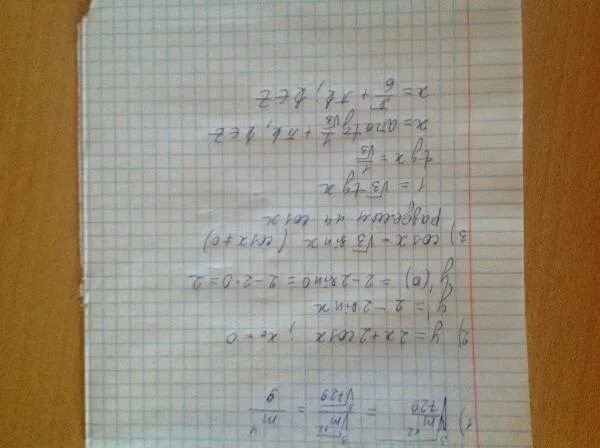 1) ∛(m¹²/729) = ∛m¹²/∛729 = m⁴/9
2) y = 2x + 2cosx ; x₀ = 0
y' = 2 - 2sinx
y'(0) = 2 - 2sin0 = 2 - 2·0 = 2
3) cosx = √3 sinx (cosx≠0)
разделим на cosx
1 = √3 tgx
tgx = 1/√3
x = arctg 1/√3 + πk, k∈Z
x = π/6 + πk, k∈Z